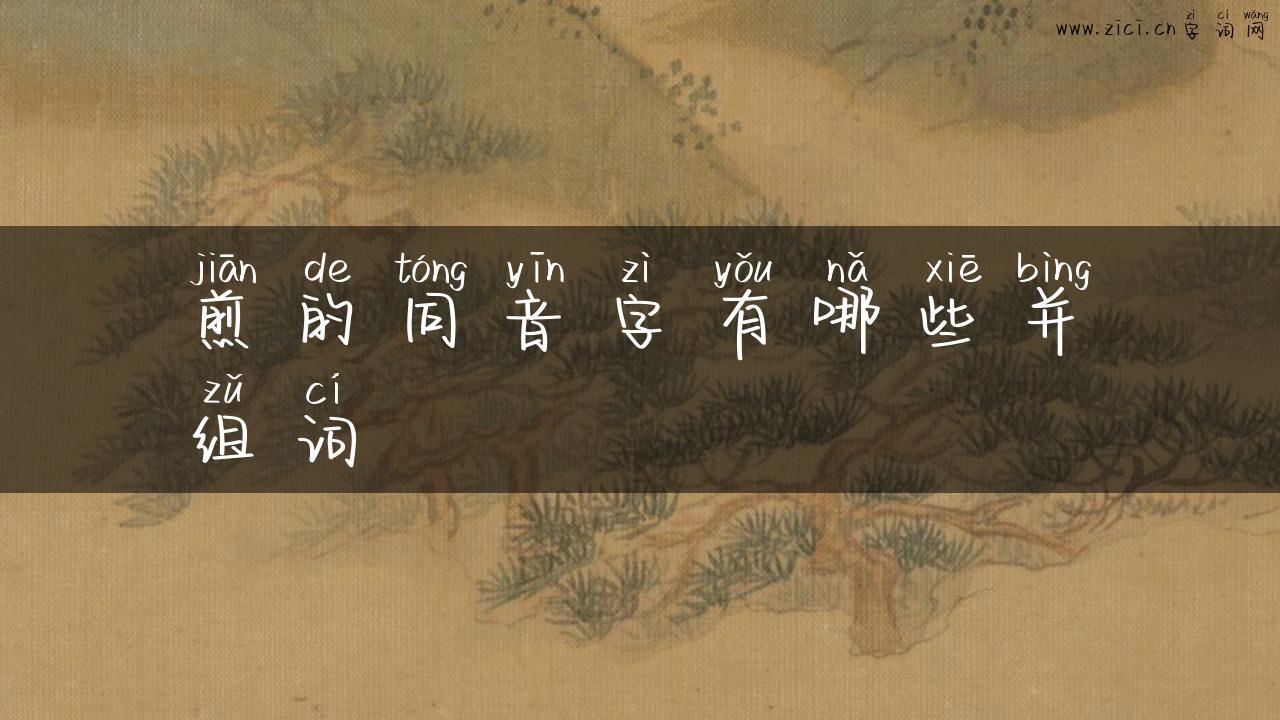 zì cí wǎng
www.zici.cn字词网
jiān de tóng yīn zì yǒu nǎ xiē bìng
煎的同音字有哪些并
zǔ cí
组词